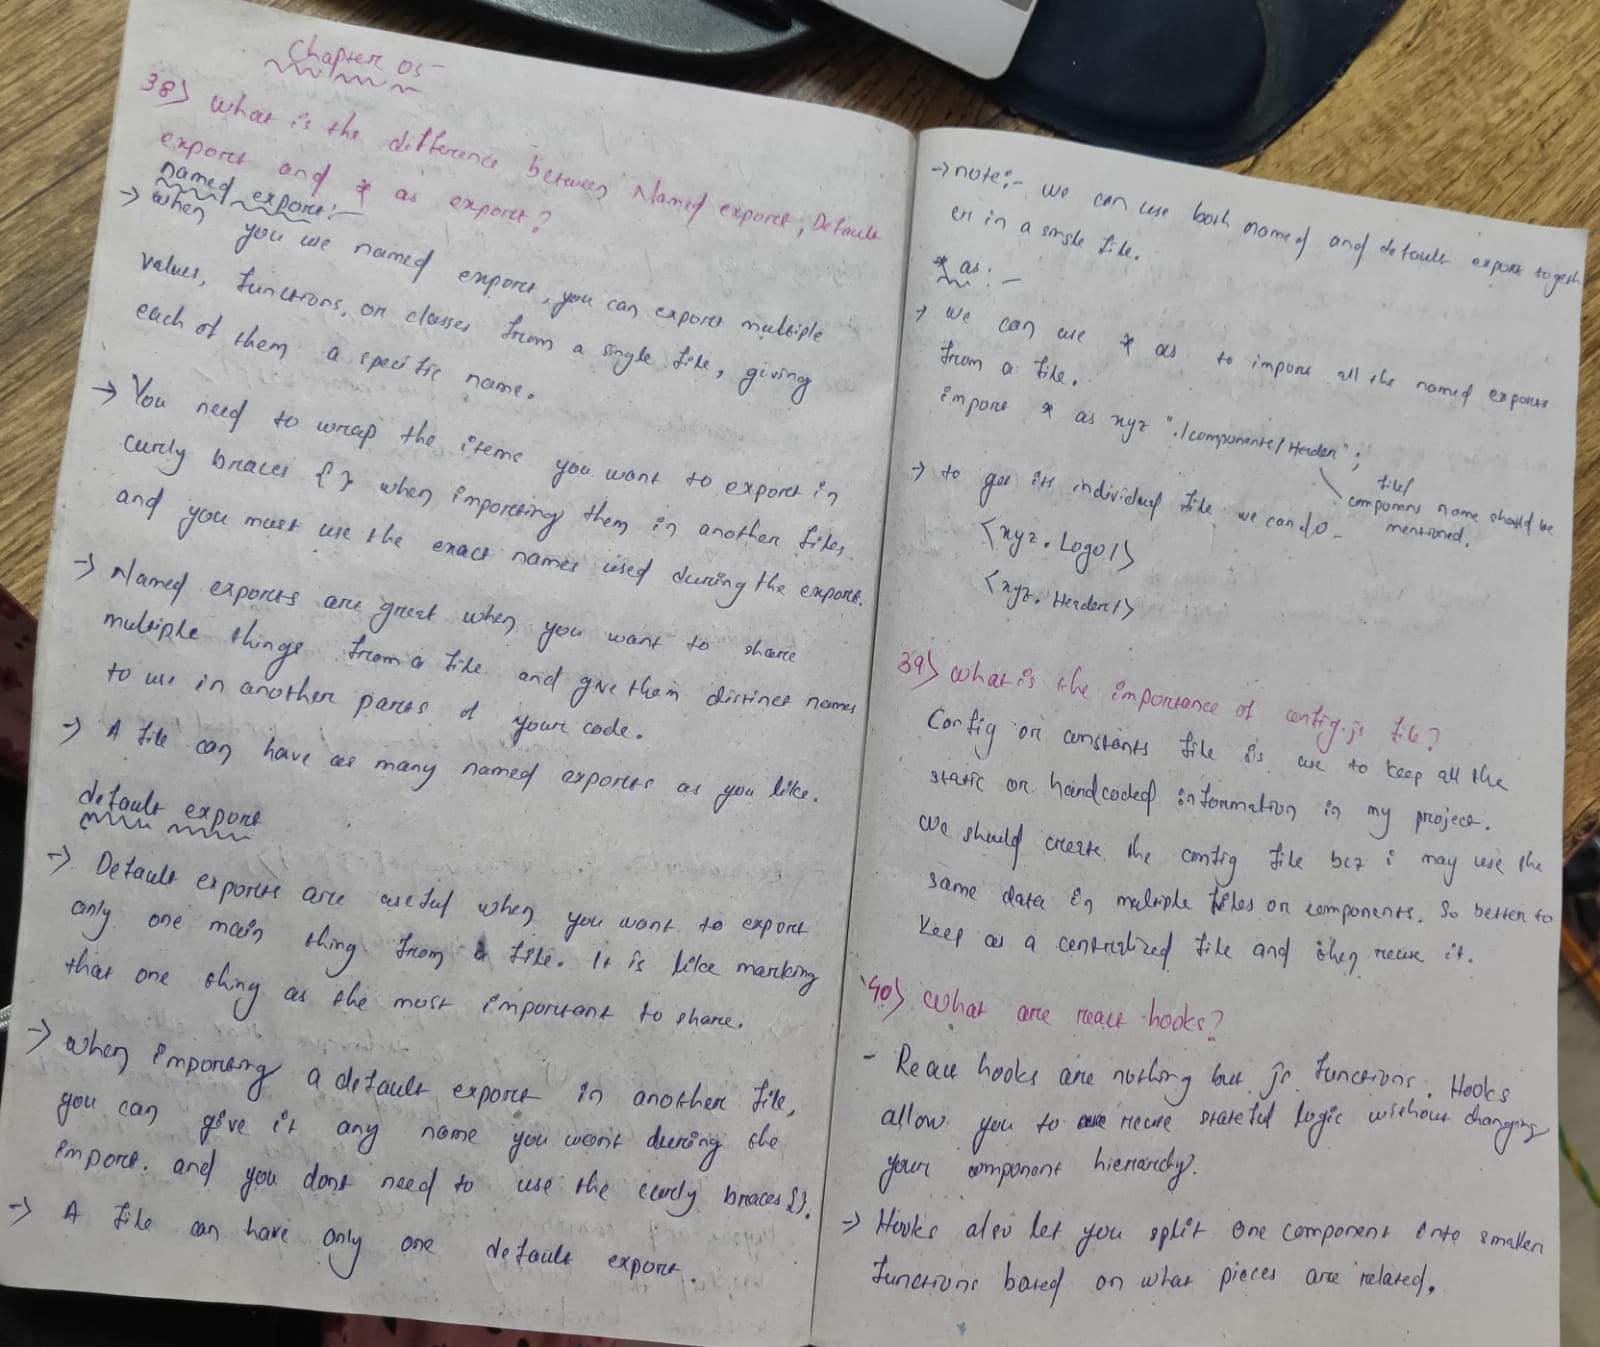 Chapter 05-
38) What is the difference between Named export, Default
export and * as export?
named export:-
→ When you use named export, you can export multiple
values, functions, or classes from a single file, giving
each of them a specific name.
→ You need to wrap the items you want to export in
curly braces { } when importing them in another files
and you must use the exact names used during the export.
→ Named exports are great when you want to share
multiple things from a file and give them distinct names
to use in another parts of your code.
→ A file can have as many named exports as you like.
default export
→ Default exports are useful when you want to export
only one main thing from a file. It is like marking
that one thing as the most important to share.
→ When importing a default export in another file,
you can give it any name you want during the
import. and you dont need to use the curly braces {}.
→ A file can have only one default export.
→ note:- we can use both named and default export togeth
er in a single file.
* as:-
→ we can use * as to import all the named exports
from a file.
import * as xyz "./components/Header";
file/
component name should be
mentioned.
→ to get its individual file we can do-
<xyz.Logo/>
<xyz.Header/>
39) What is the importance of config.js file?
Config or constants file is use to keep all the
static or hardcoded information in my project.
we should create the config file bcz i may use the
same data in multiple files or components. So better to
keep as a centralized file and then reuse it.
40) What are react hooks?
- React hooks are nothing but js functions. Hooks
allow you to reuse stateful logic without changing
your component hierarchy.
→ Hooks also let you split one component into smaller
functions based on what pieces are related.